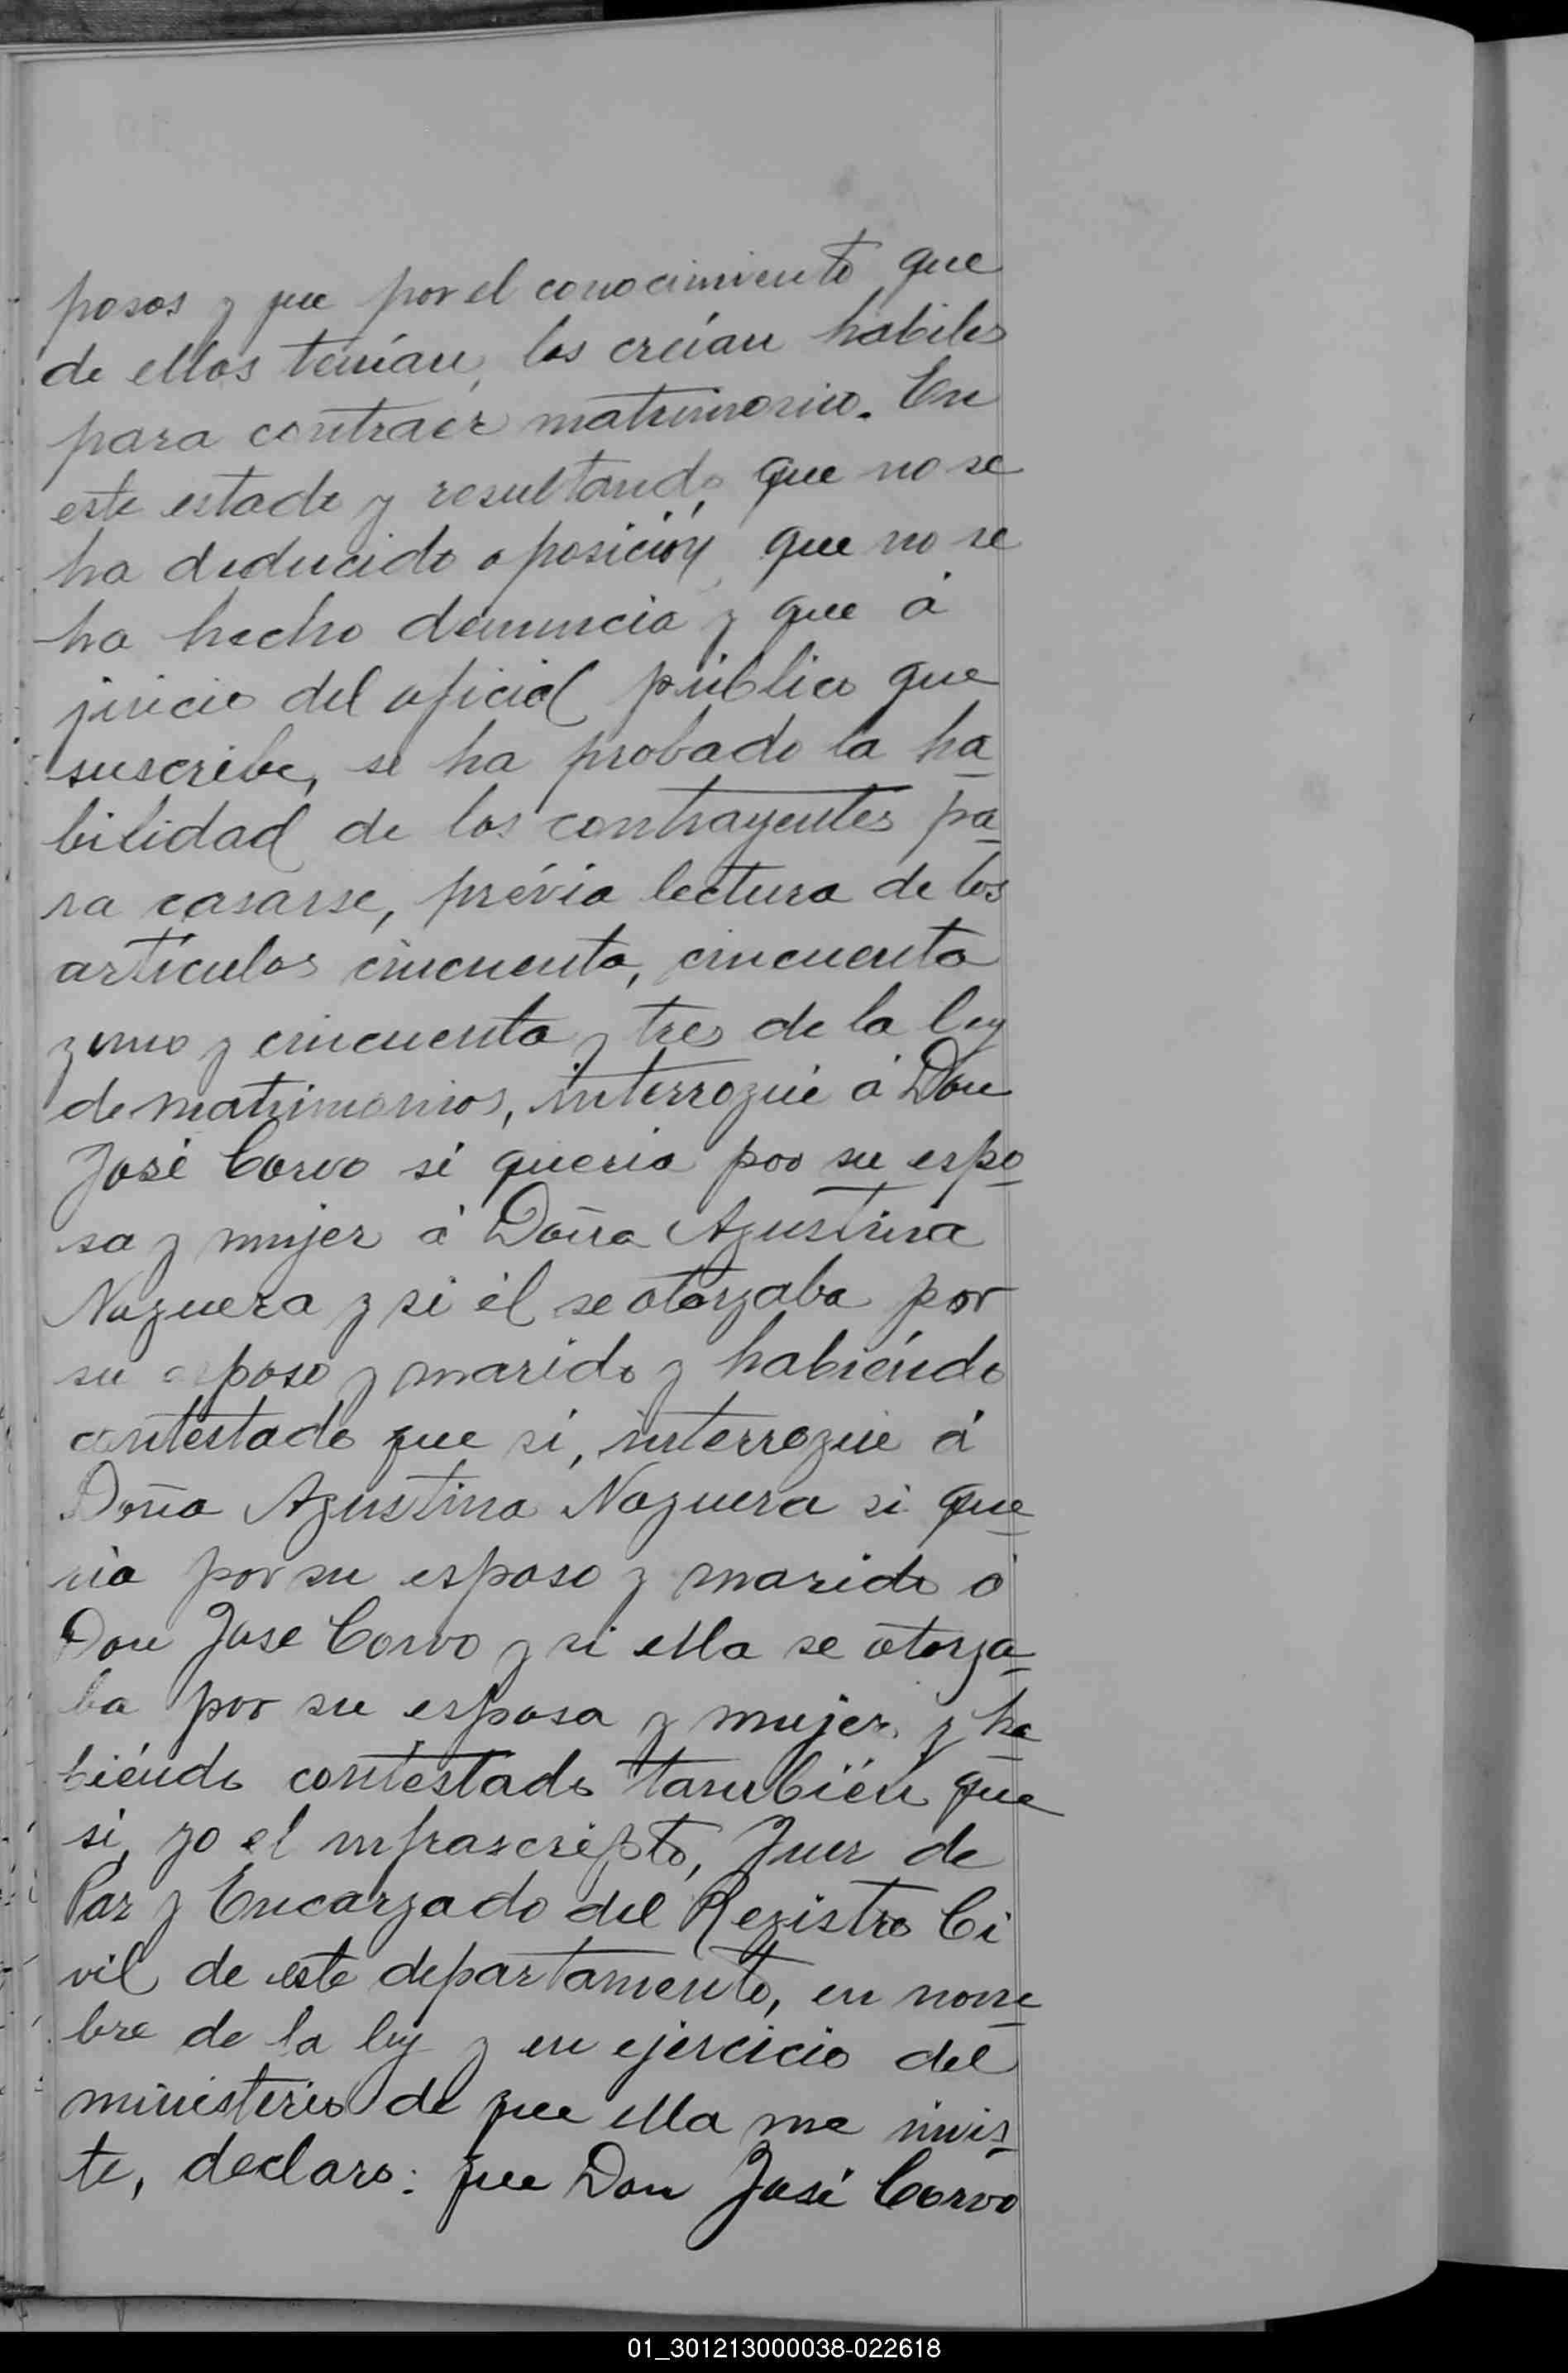 posos y que por el conocimiento que
de ellos tenían, los creían habiles
para contraér matrimonio. En
este estado y resultando, que no se
ha deducido oposición, que no se
ha hecho denuncia y que á
juicio del oficial público que
suscribe, se ha probado la ha-
bilidad de los contrayentes pa-
ra casarse, prévia lectura de los
artículos cincuenta, cincuenta
y uno y cincuenta y tres de la ley
de matrimonios, interrogué á Don
José Corvo si queria por su espo-
sa y mujer á Doña Agustina
Noguera y si él se otorgaba por
su esposo y marido y habiéndo
contestado que si, interrogué á
Doña Agustina Noguera si que-
ria por su esposo y marido á
Don Jose Corvo y si ella se otorga-
ba por su esposa y mujer, y ha-
biéndo contestado también que
si, yo el infrascripto, Juez de
Paz y Encargado del Registro Ci
vil de este departamento, en nom-
bre de la ley y en ejercicio del
ministerio de que ella me invis-
te, declaro: que Don José Corvo
01_301213000038-022618